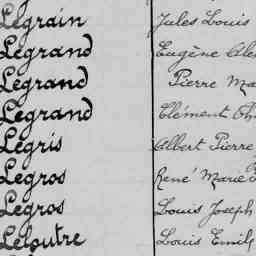 Legrain Jules Louis
Legrand Eugène
Legrand Pierre
Legrand Clément
Legris Albert Pierre
Legros René Marie
Legros Louis Joseph
Leloutre Louis Emile